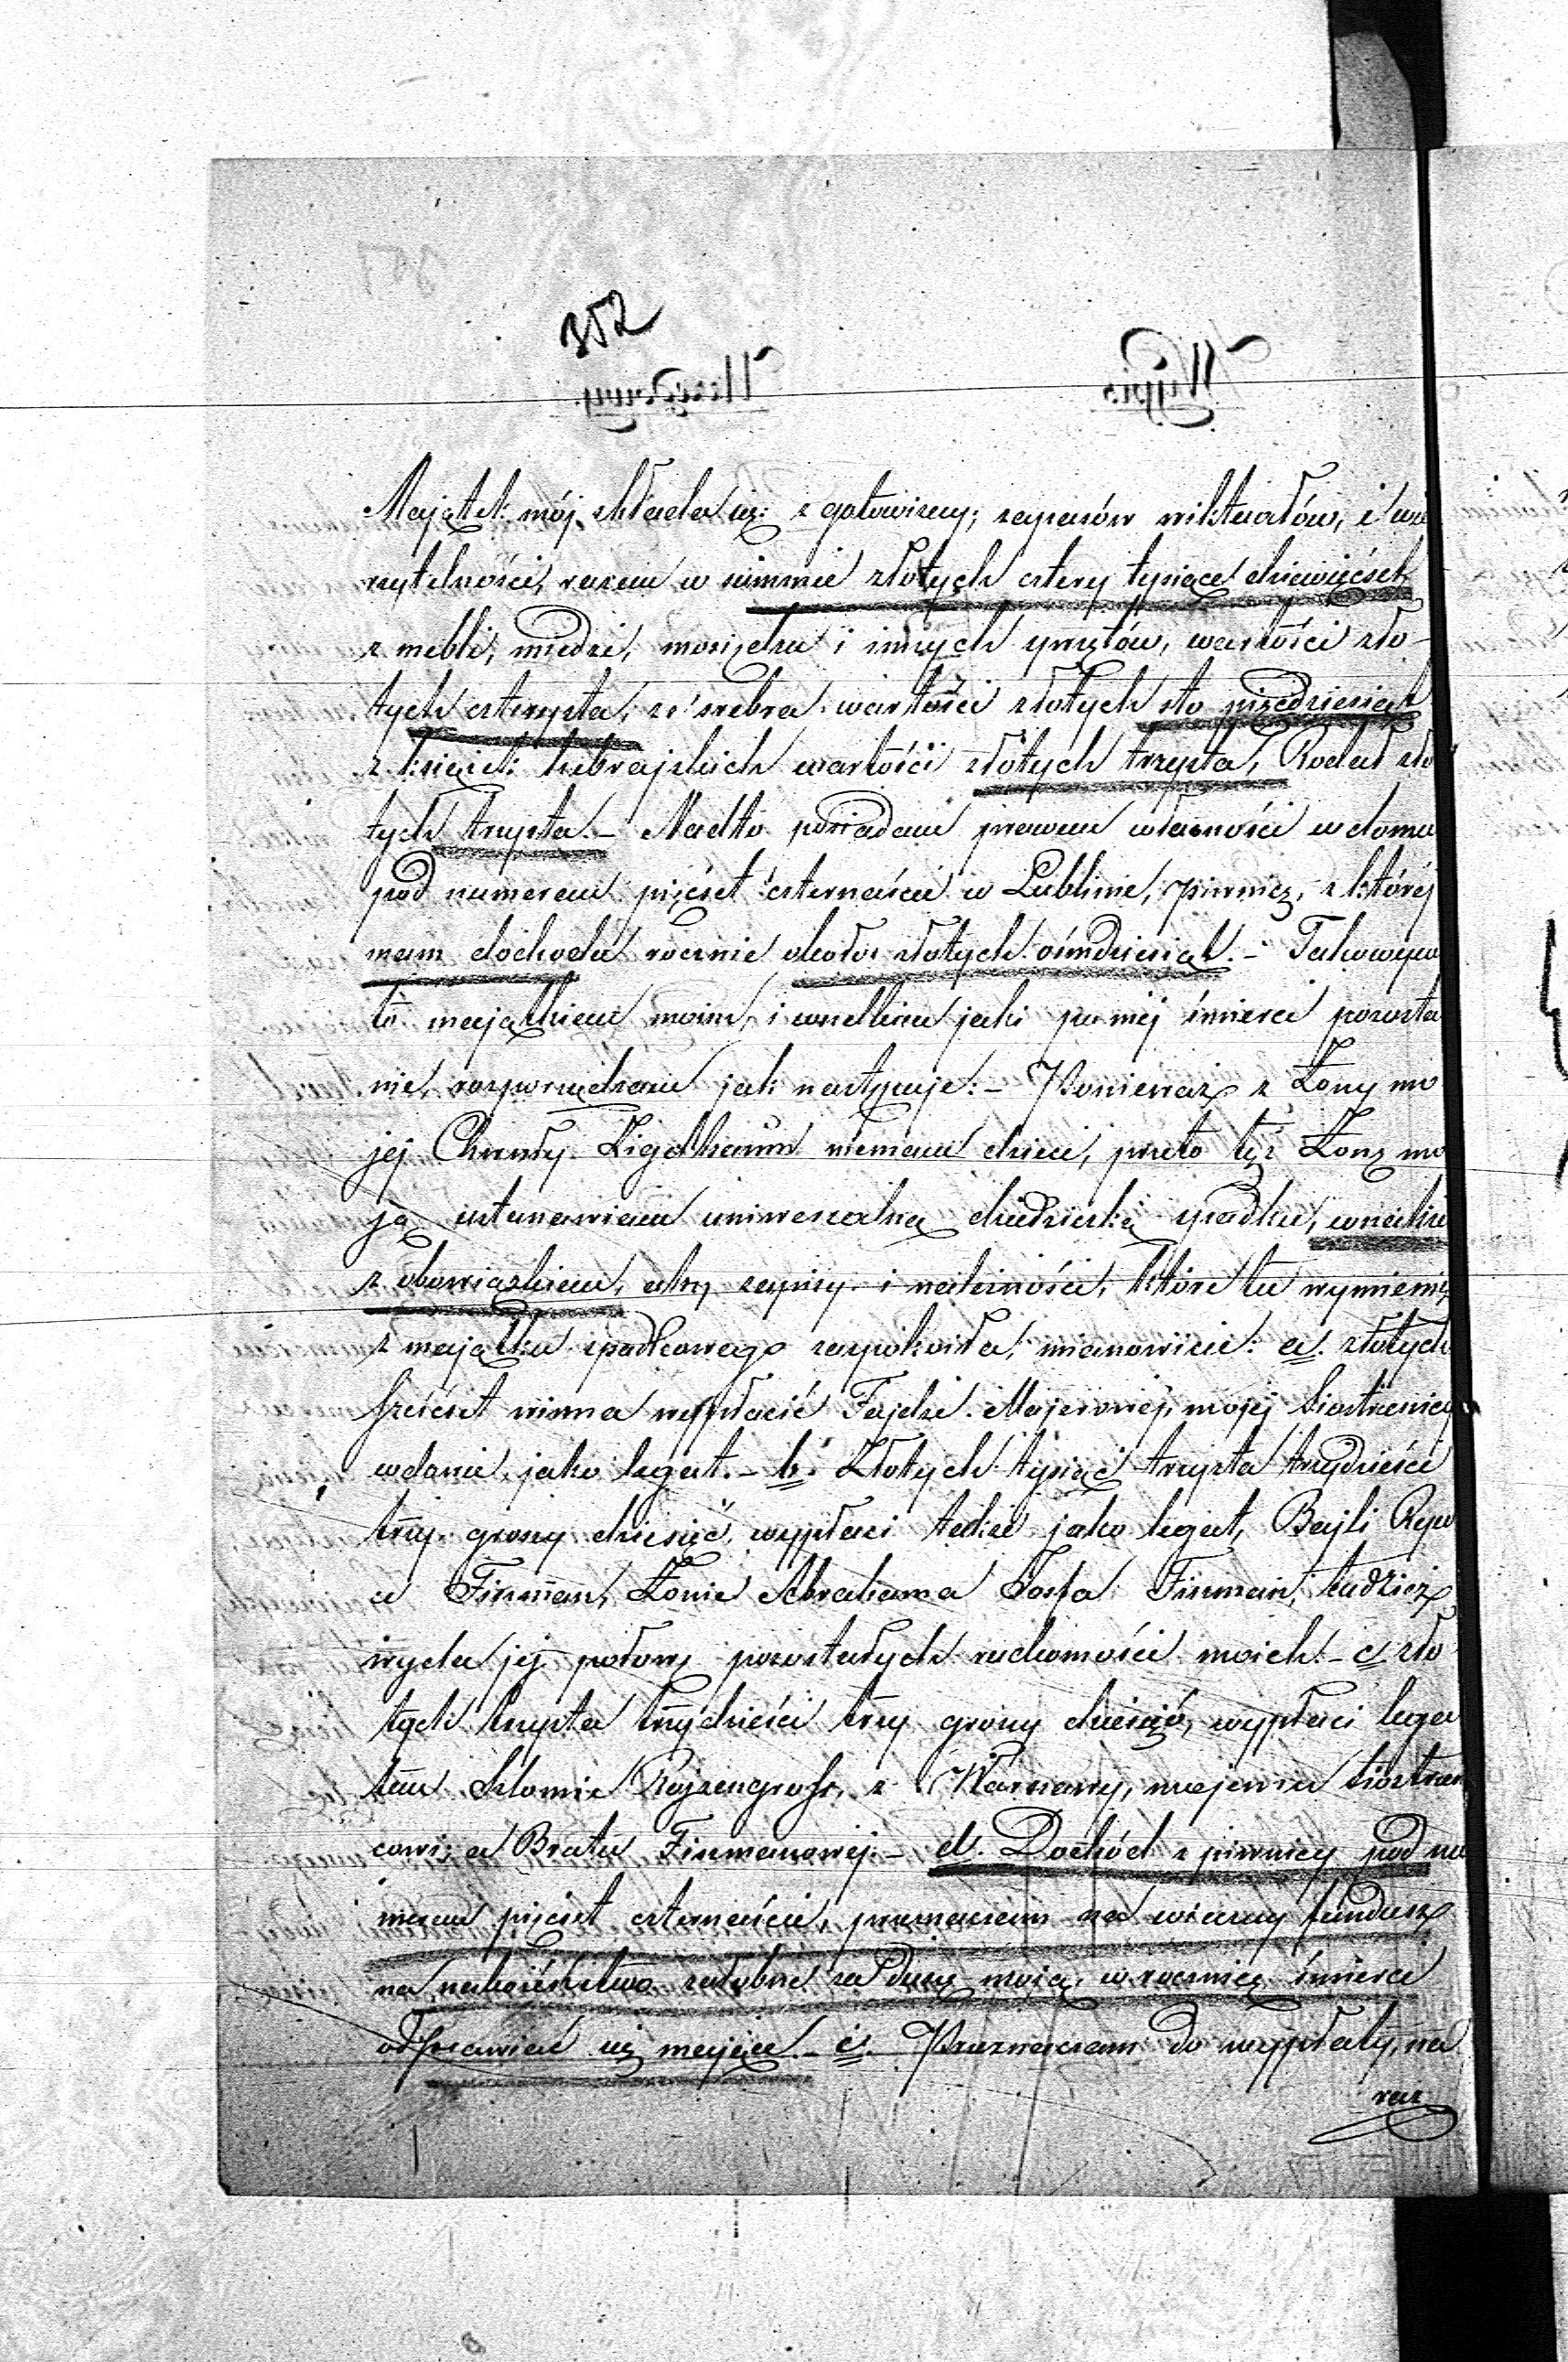 352
Urzędowy Wypis
Majątek mój składa się: z gotowizny, zapasów wiktuałów, i wie
rzytelności, razem w summie złotych cztery tysiące dziewięćset,
z mebli, miedzi, mosiądzu i innych sprzętów, wartości zło-
tych czterysta, ze srebra wartości złotych sto pięćdziesiąt
z książek hebrajskich wartości złotych trzysta, Rodał zło
tych trzysta. – Nadto posiadam prawem własności w domu
pod numerem pięćset czternaście w Lublinie, piwnicę, z której
mam dochodu rocznie około złotych ośmdziesiąt. – Takowym
to majątkiem moim, i wszelkim jaki po mej śmierci pozosta
nie, rozporządzam jak następuje: – Ponieważ z Żony mo
jej Chawdy Zigelbaum niemam dzieci, przeto tęż Żonę mo
ją ustanawiam uniwersalną dziedziczką spadku, wszakże
z obowiązkiem, aby zapisy i należności, które tu wymienię,
z majątku spadkowego zaspokoiła, mianowicie: a. złotych
sześćset winna wypłacić Fajdzi Majerowej, mojej Siostrzenicy
wdowie, jako legat. – b. Złotych tysiąc trzysta trzydzieści
trzy groszy dziesięć, wypłaci także jako legat, Bajli Ryw
ce Finman, Żonie Abrahama Joska Finman, tudzież
wyda jej połowę pozostałych ruchomości moich. – c. zło
tych trzysta trzydzieści trzy groszy dziesięć, wypłaci lega
tem Szlomie Rozengross, z Warszawy, mojemu siostrzeń
cowi, a Bratu Finmanowej. – d. Dochód z piwnicy pod nu
merem pięćset czternaście, przeznaczam na wieczny fundusz
na nabożeństwo żałobne za duszę moją, w rocznicę śmierci
odprawiać się mające. – e. Przeznaczam do wypłaty, na
raz